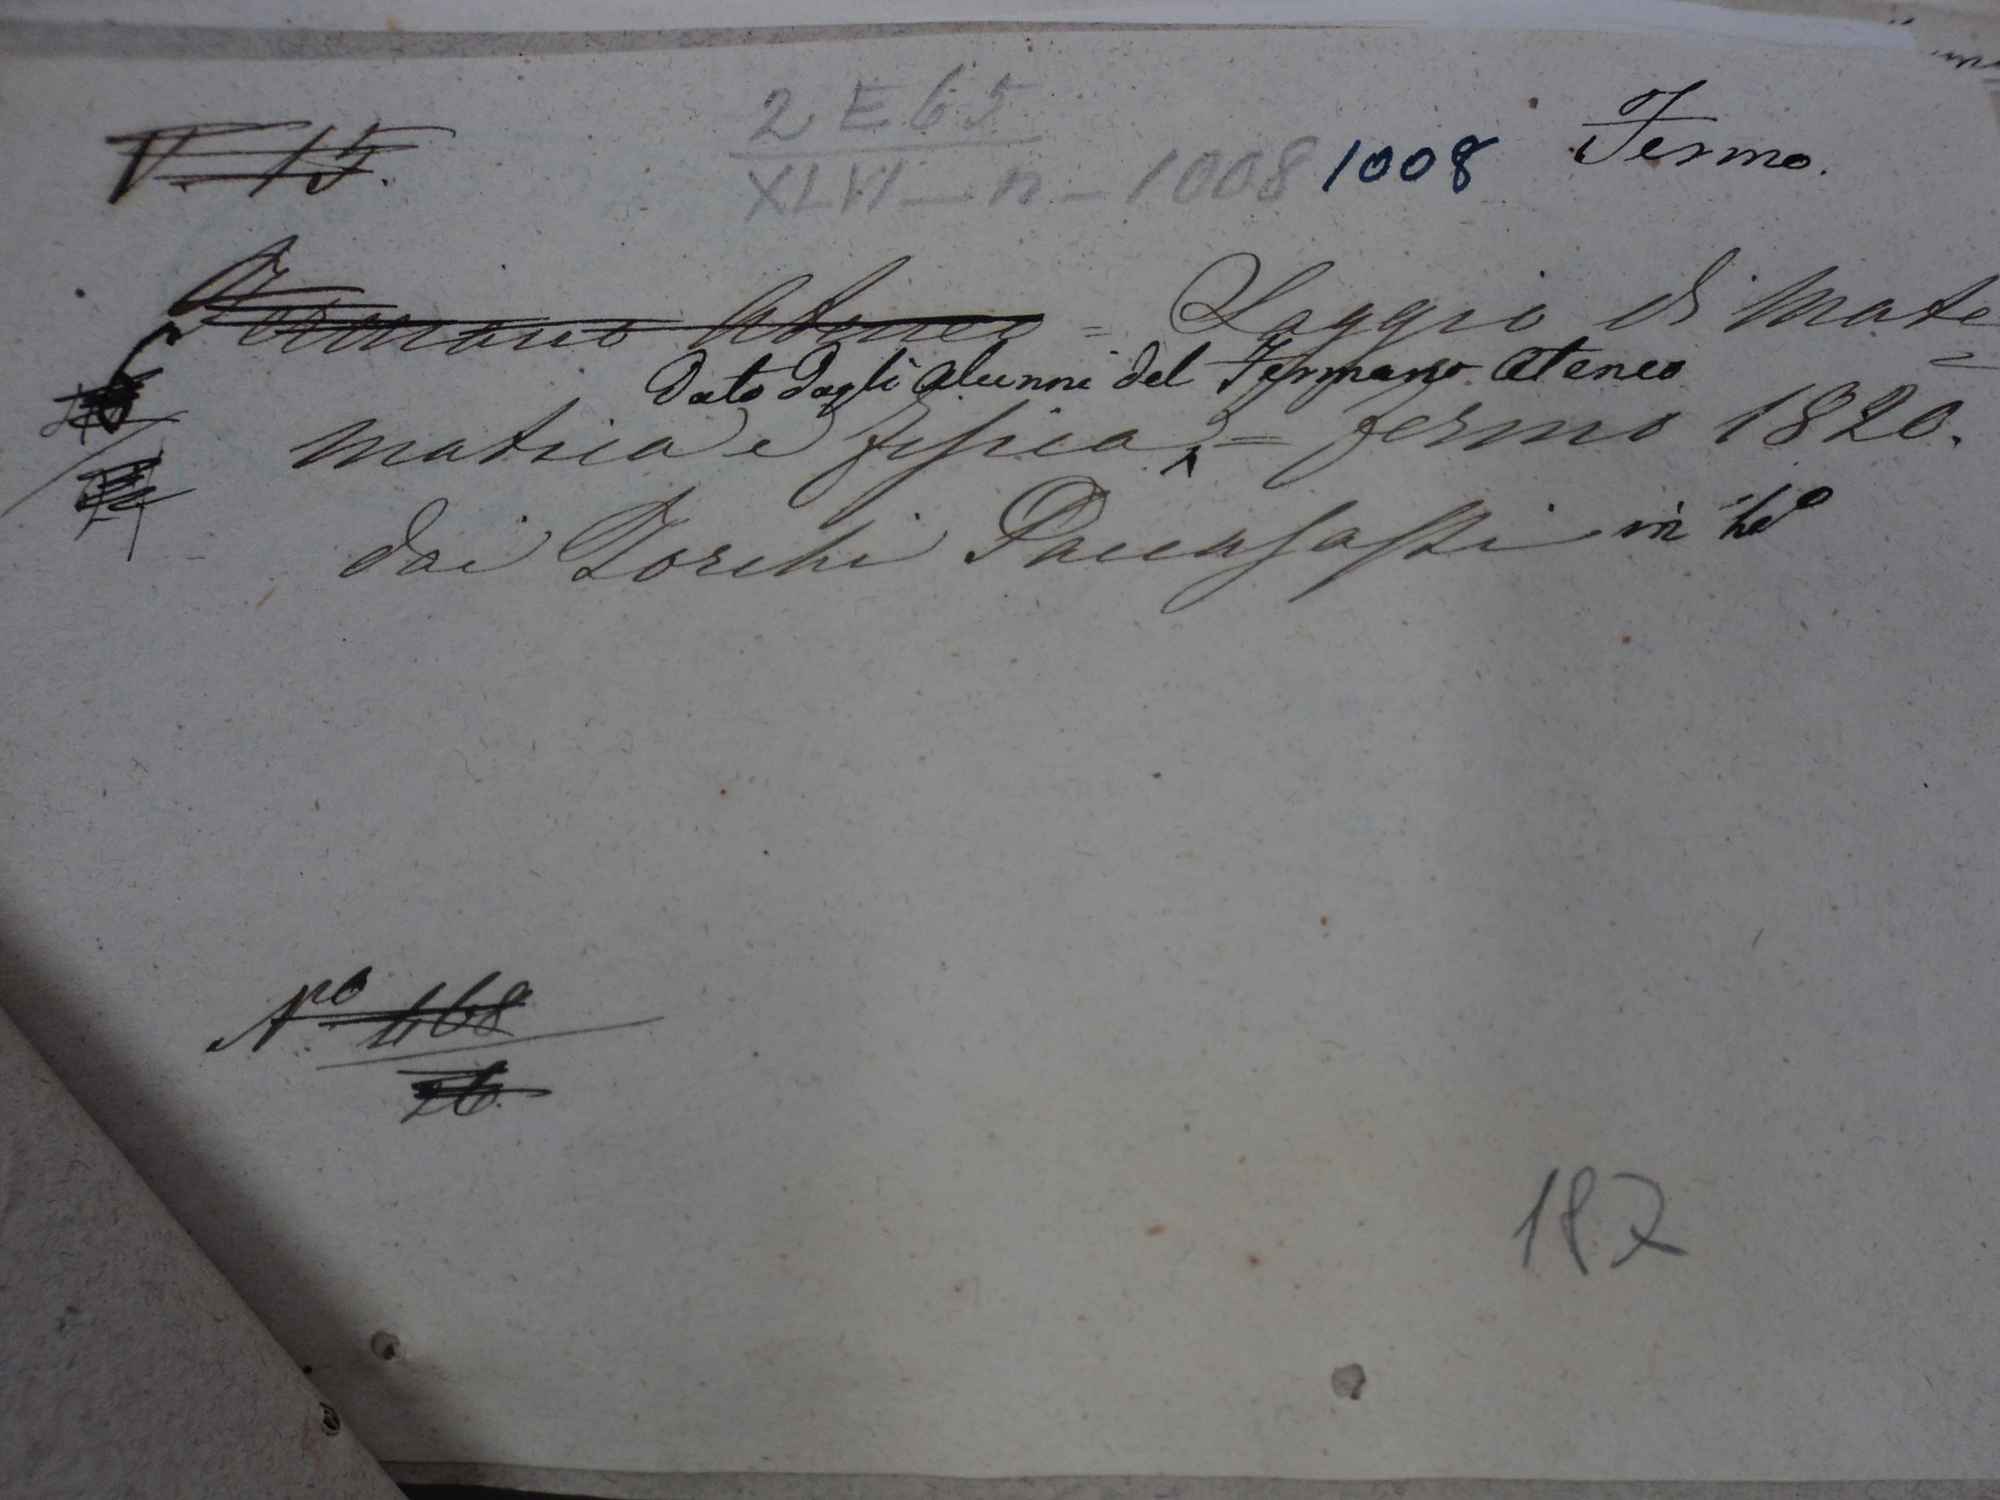 V. 15.
2 E 65
XLVI - n - 1008
1008 Fermo.
Fermano Ateneo = Saggio di Mate=
dato dagli Alunni del Fermano Ateneo
matica e Fisica = Fermo 1820.
dai Torchi Paccasassi in
No. 468
26.
187